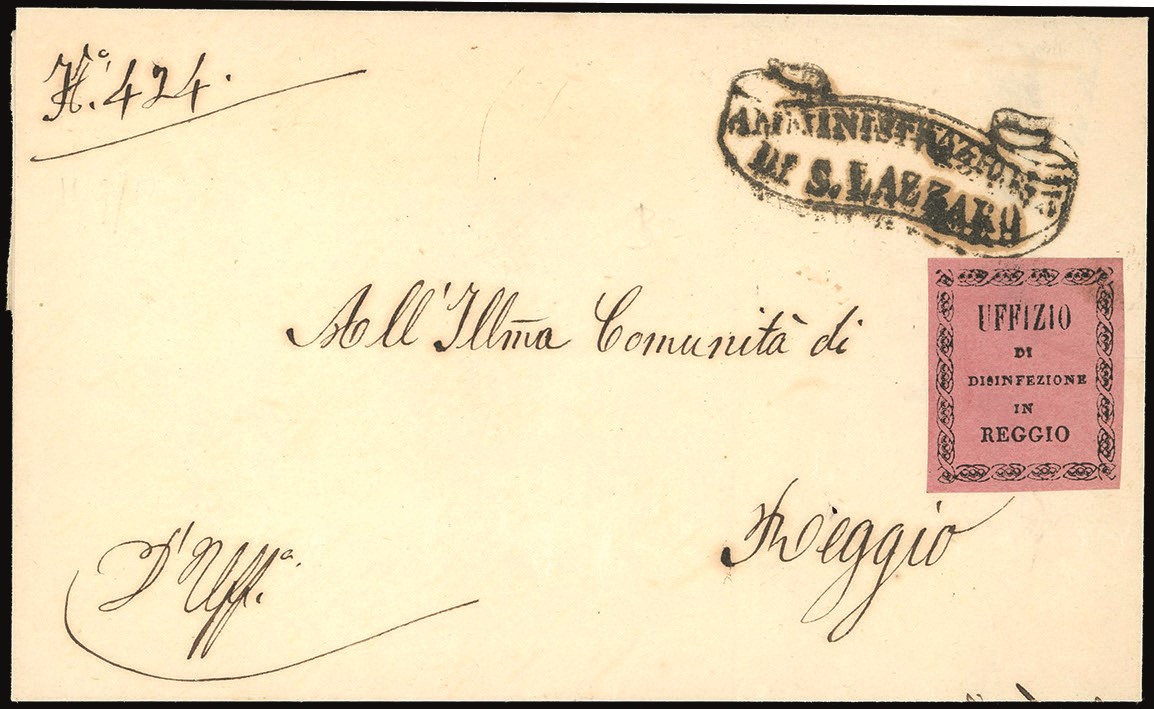 N.º 424.
AMMINISTRAZIONE
DI S. LAZZARO
All'Illm̃a Comunità di
Reggio
D'Uff.º
UFFIZIO
DI
DISINFEZIONE
IN
REGGIO